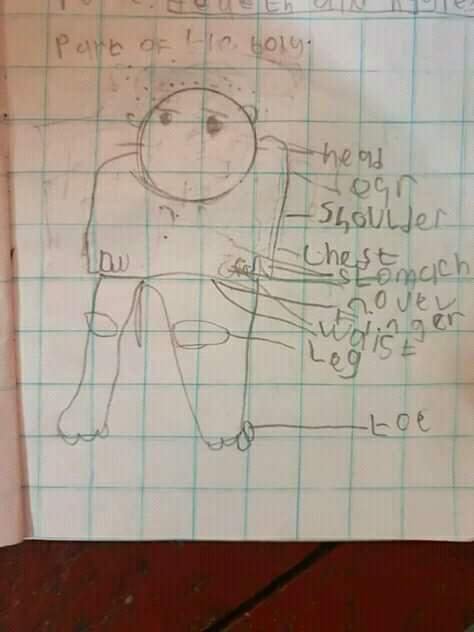 Part of the body.
head
ear
Shoulder
Chest
Stomach
novel
finger
waist
Leg
toe